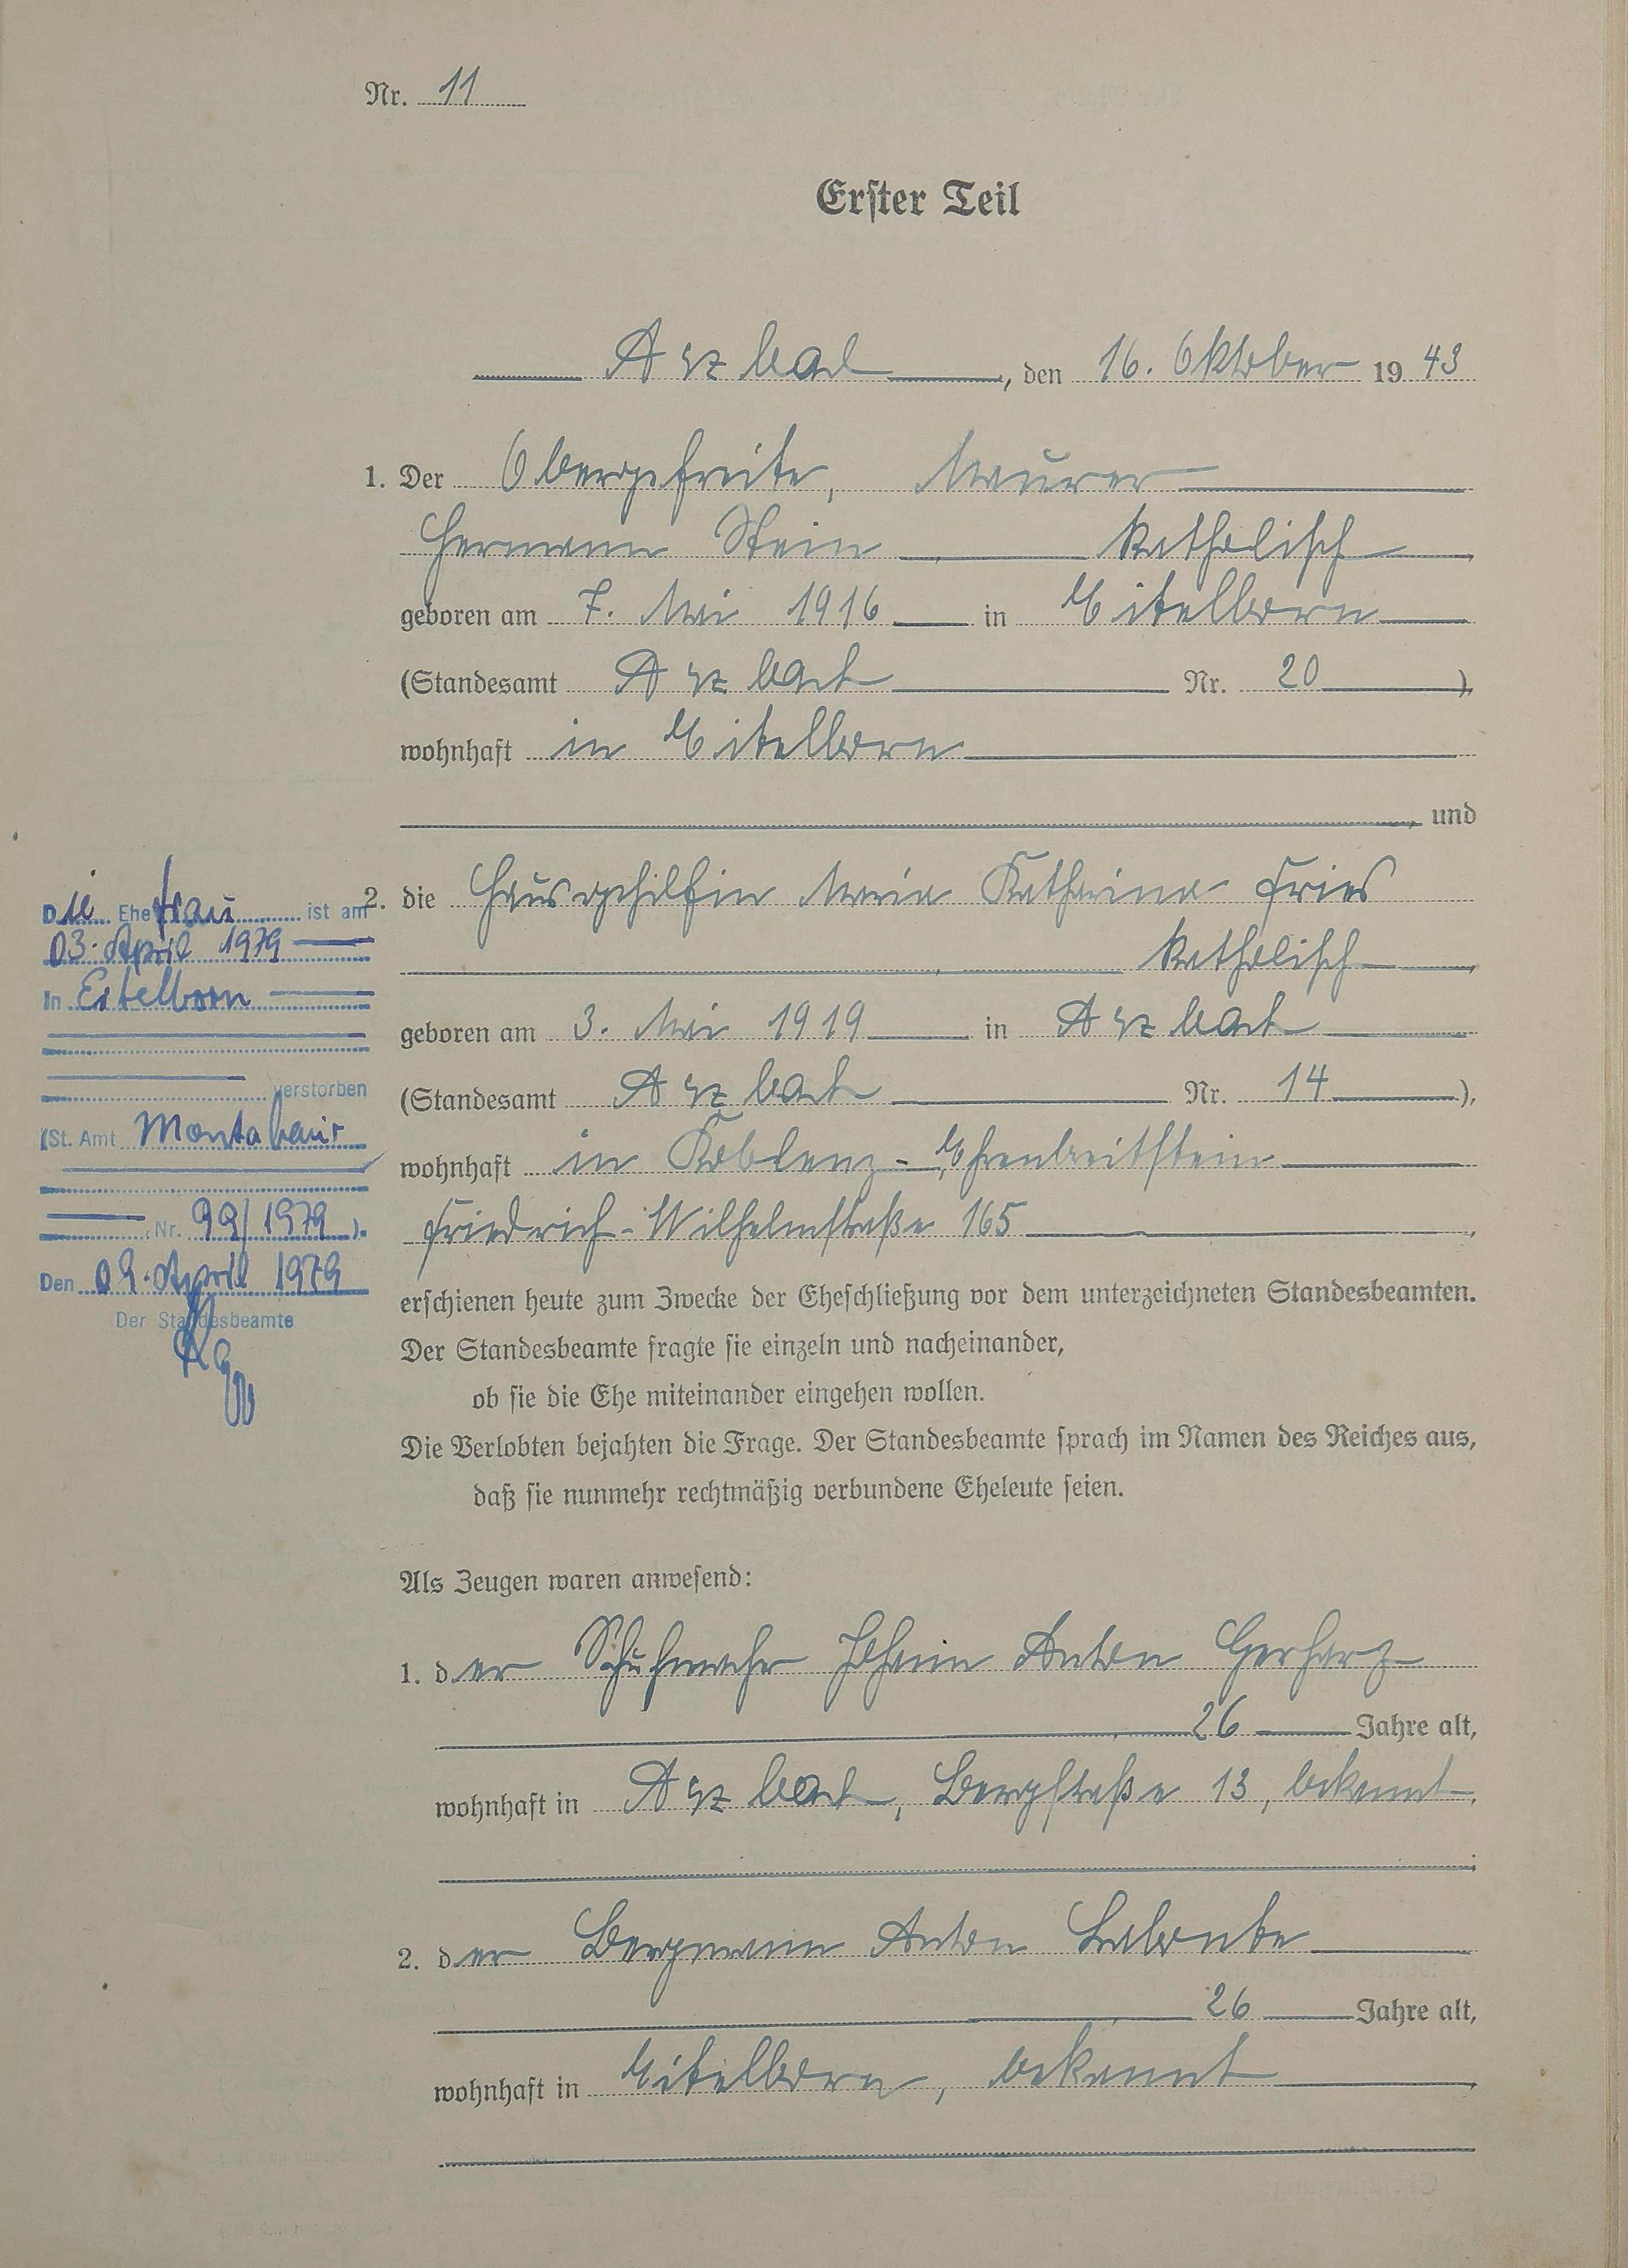 Nr. 11
Erster Teil
Arzbach, den 16. Oktober 1943
1. Der Obergefreite, Maurer
Hermann Stein, katholisch,
geboren am 7. Mai 1916 in Eitelborn
(Standesamt Arzbach Nr. 20),
wohnhaft in Eitelborn
, und
2. die Hausgehilfin Maria Katharina Fries
, katholisch,
geboren am 3. Mai 1919 in Arzbach
(Standesamt Arzbach Nr. 14),
wohnhaft in Koblenz-Ehrenbreitstein
Friedrich-Wilhelmstraße 165,
erschienen heute zum Zwecke der Eheschließung vor dem unterzeichneten Standesbeamten.
Der Standesbeamte fragte sie einzeln und nacheinander,
ob sie die Ehe miteinander eingehen wollen.
Die Verlobten bejahten die Frage. Der Standesbeamte sprach im Namen des Reiches aus,
daß sie nunmehr rechtmäßig verbundene Eheleute seien.
Als Zeugen waren anwesend:
1. der Schuhmacher Johann Anton Gerharz
, 26 Jahre alt,
wohnhaft in Arzbach, Bergstraße 13, bekannt,
;
2. der Bergmann Anton Labonte
, 26 Jahre alt,
wohnhaft in Eitelborn, bekannt,
Die Ehefrau ist am
03. April 1979
in Eitelborn
verstorben
(St. Amt Montabaur
Nr. 99/1979).
Den 09. April 1979
Der Standesbeamte